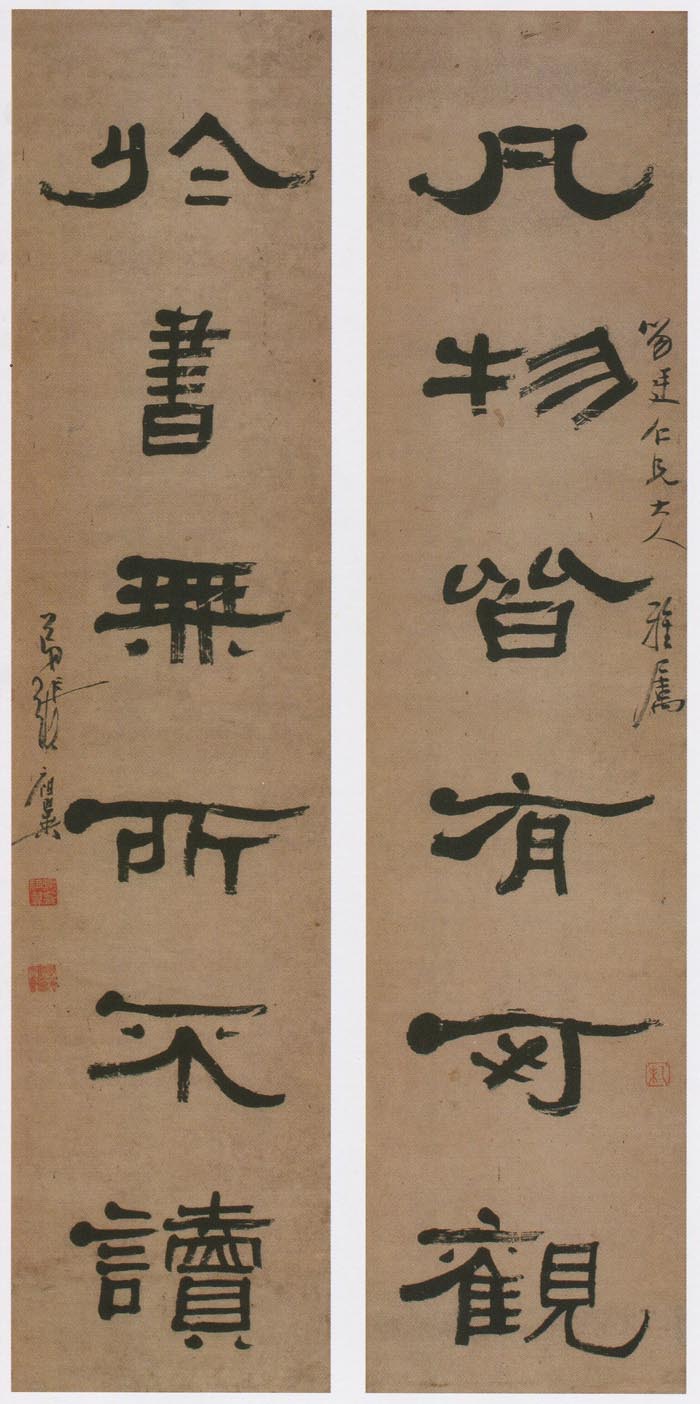 凡物皆有可觀
仁兄大人 雅屬
於書無所不讀